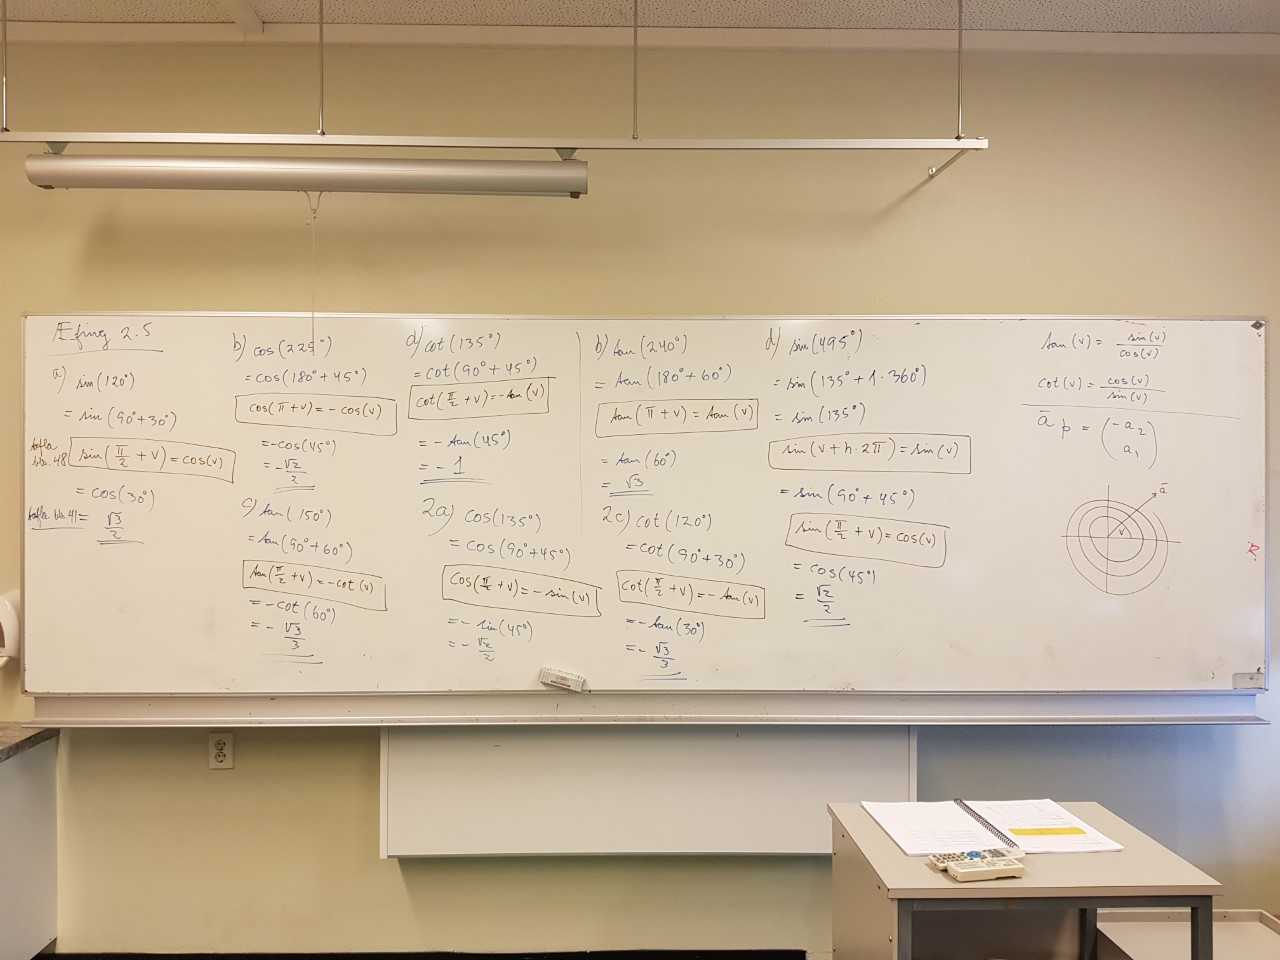 Æfing 2.5
a) sin(120°)
= sin(90°+30°)
sin(π/2 + v) = cos(v)
= cos(30°)
= √3/2
b) cos(225°)
= cos(180°+45°)
cos(π+v) = -cos(v)
= -cos(45°)
= -√2/2
c) tan(150°)
= tan(90°+60°)
tan(π/2+v) = -cot(v)
= -cot(60°)
= -√3/3
d) cot(135°)
= cot(90°+45°)
cot(π/2+v) = -tan(v)
= -tan(45°)
= -1
2a) cos(135°)
= cos(90°+45°)
cos(π/2+v) = -sin(v)
= -sin(45°)
= -√2/2
b) tan(240°)
= tan(180°+60°)
tan(π+v) = tan(v)
= tan(60°)
= √3
2c) cot(120°)
= cot(90°+30°)
cot(π/2+v) = -tan(v)
= -tan(30°)
= -√3/3
d) sin(495°)
= sin(135°+1·360°)
= sin(135°)
sin(v+n·2π) = sin(v)
= sin(90°+45°)
sin(π/2+v) = cos(v)
= cos(45°)
= √2/2
tan(v) = sin(v)/cos(v)
cot(v) = cos(v)/sin(v)
ā p = (-a₂
a₁)
ā
v
R